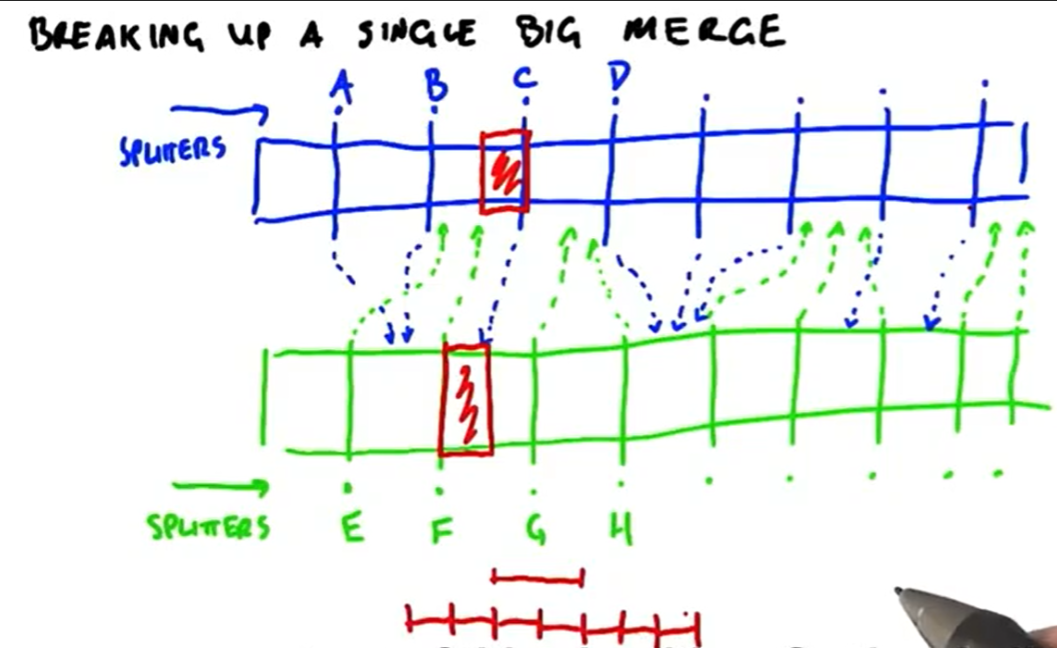 BREAKING UP A SINGLE BIG MERGE
A B C D
SPLITTERS
SPLITTERS
E F G H